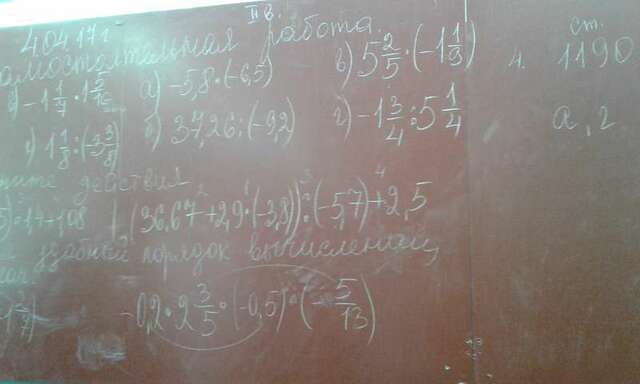 II в.
4.04.17 г
самостоятельная работа.
ст.
в) -1 1/7 · 1 5/16 а) -5,8·(-6,5) в) 5 2/5 · (-1 1/9) 4. 1190
г) 1 1/8 : (-3 3/8) б) 37,26:(-9,2) г) -1 3/4 : 5 1/4 а, г
действия
:14-1,08 (36,67+2,9·(-3,8)):(-5,7)+2,5
удобный порядок вычислений
-0,2·2 3/5·(-0,5)·(-5/13)